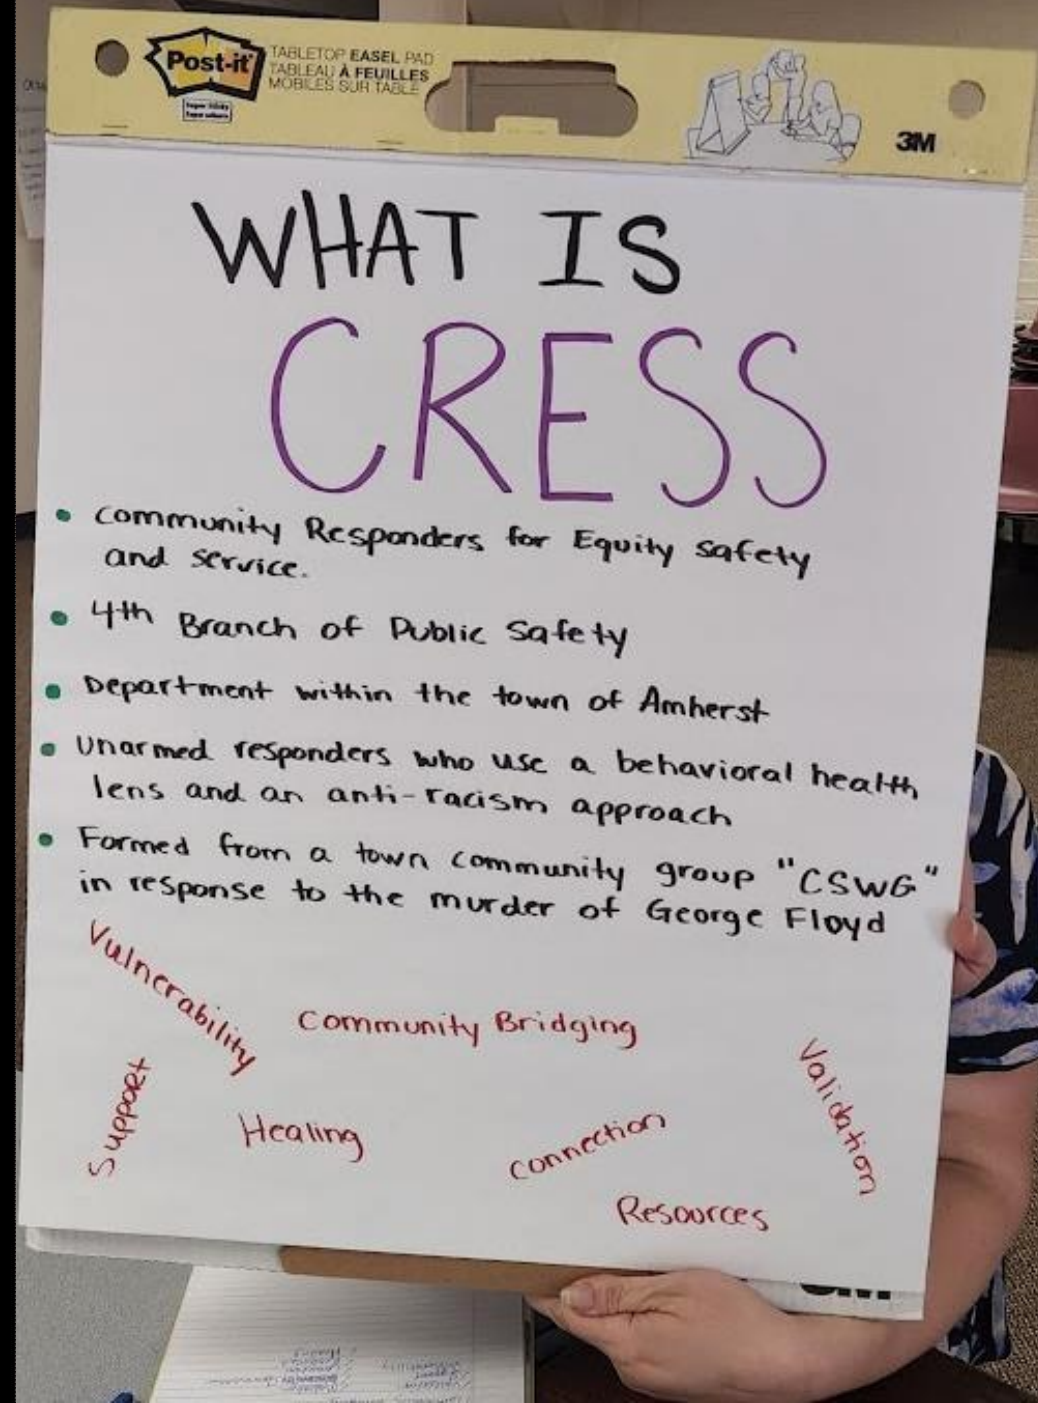 Post-it
TABLETOP EASEL PAD
TABLEAU À FEUILLES
MOBILES SUR TABLE
3M
WHAT IS
CRESS
• Community Responders for Equity safety
and service.
• 4th Branch of Public Safety
• Department within the town of Amherst
• Unarmed responders who use a behavioral health
lens and an anti-racism approach
• Formed from a town community group "CSWG"
in response to the murder of George Floyd
Vulnerability
Community Bridging
Validation
Support
Healing
Connection
Resources